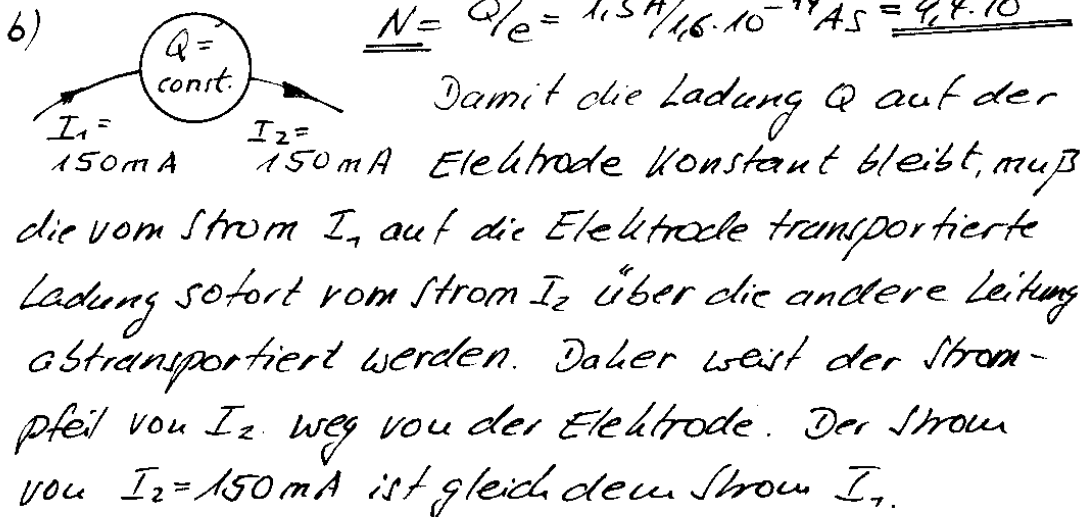 b)
N = Q/e = 1,5A/1,6·10⁻¹⁹As = 9,4·10
Q =
const.
I₁ =
150mA
I₂ =
150mA
Damit die Ladung Q auf der
Elektrode konstant bleibt, muß
die vom Strom I₁ auf die Elektrode transportierte
Ladung sofort vom Strom I₂ über die andere Leitung
abtransportiert werden. Daher weist der Strom-
pfeil von I₂ weg von der Elektrode. Der Strom
von I₂ = 150mA ist gleich dem Strom I₁.